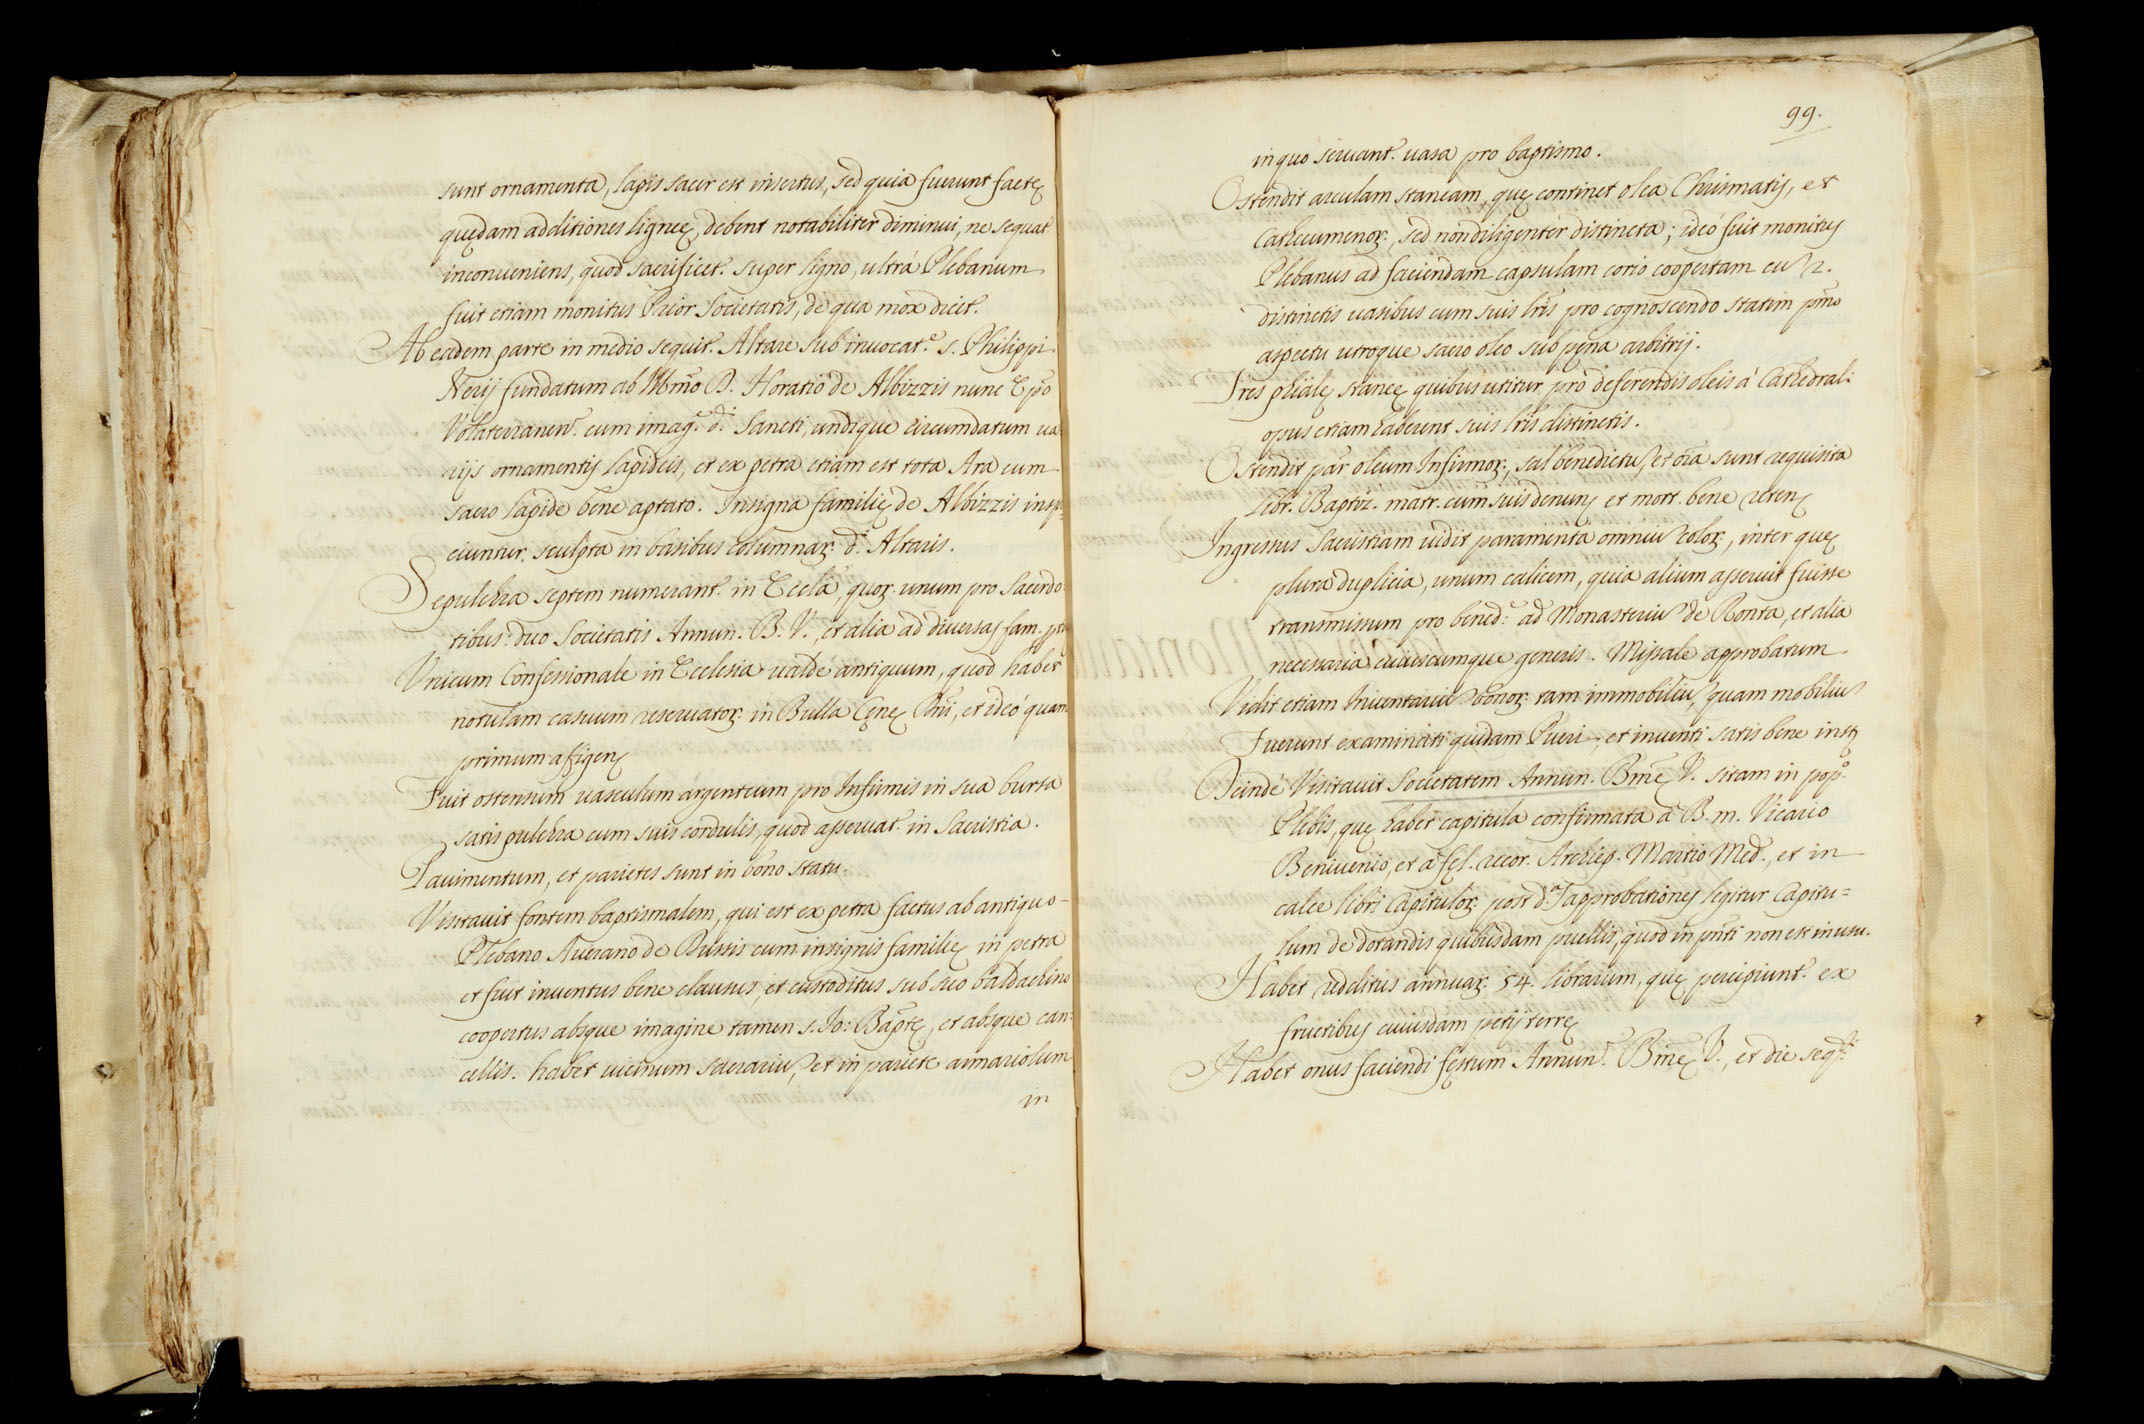 sunt ornamenta, lapis sacer est insertus, sed quia fuerunt factę
quędam additiones ligneę, debent notabiliter diminui, ne sequat.
inconueniens, quod sacrificet. super ligno, ultrà Plebanum
fuit etiam monitus Prior Societatis, de qua mox dicet.
Ab eadem parte in medio sequit. Altare sub inuocat.e s. Philippi
Nerij fundatum ab Illmo D. Horatio de Albizzis nunc Epo
Volaterranen. cum imag.e d.i Sancti, undique circumdatum ua
rijs ornamentis lapideis, et ex petra etiam est tota Ara cum
sacro lapide bene aptato. Insigna familię de Albizzis insp=
ciuntur sculpta in basibus columnar. d.i Altaris.
Sepulchra septem numerant. in Eccla, quor. unum pro Sacerdo
tibus: duo Societatis Annun. B. V., et alia ad diuersas fam.
Vnicum Confessionale in Ecclesia ualdè antiquum, quod habet
notulam casuum reseruator. in Bulla Cęnę Dni, et ideò quam
primum affigen
Fuit ostensum uasculum argenteum pro Infirmis in sua bursa
satis pulchra cum suis cordulis, quod asseruat. in Sacristia.
Pauimentum, et parietes sunt in bono statu.
Visitauit fontem baptismalem, qui est ex petra factus ab antiquo
Plebano Auerano de cum insignis familię in petra
et fuit inuentus bene clausus, et custoditus sub suo baldachino
coopertus absque imagine tamen s. Io: Baptę, et absque can=
cellis. habet uicinum sacrariu, et in pariete armariolum
in
99.
in quo seruant. uasa pro baptismo.
Ostendit arculam staneam, quę continet olea Chrismatis, et
Cathecumenor., sed non diligenter distincta; ideò fuit monitus
Plebanus ad faciendam capsulam corio coopertam cu 2.
distinctis uasibus cum suis lris pro cognoscendo statim pmo
aspectu utroque sacro oleo sub pęna arbitrij.
Tres phialę stanee quibus utitur pro deferendis oleis à Cathedrali
opus etiam haberent suis lris distinctis.
Ostendit par oleum Infirmor., sal benedictu, et oia sunt requisita
libr. Baptiz. matr. cum suis denun et mort. bene reten
Ingressus Sacristiam uidit paramenta omniu color., inter quę
plura duplicia, unum calicem, quia alium asseruit fuisse
transmissum pro bened.e ad Monasteriu de Ronta, et alia
necessaria cuiuscumque generis. Missale approbatum.
Vidit etiam Inuentariu bonor. tam immobiliu, quam mobiliu
Fuerunt examinati quidam Pueri, et inuenti satis bene inst
Deindè Visitauit Societatem Annun. Bmę V. sitam in pop.o
Plebis, quę habet capitula confirmata à B. m. Vicario
Beniuenio, et à fęl. recor. Archiep. Martio Med., et in
calce libri Capitulor. post d. approbationes legitur Capitu=
lum de dotandis quibusdam puellis, quod in pnti non est in usu.
Habet redditus annuar. 54. librarum, quę percipiunt. ex
fructibus cuiusdam petij terrę
Habet onus faciendi fęstum Annun. Bmę V., et die seq.ti